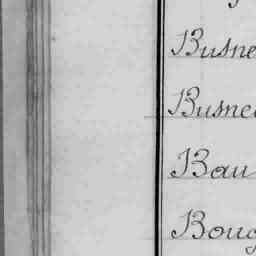 Busne
Busne
Bau
Boug